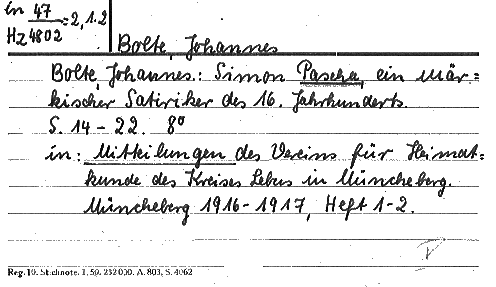 in 47 = 2,1.2
Hz 4802
Bolte, Johannes
Bolte, Johannes.: Simon Pascha, ein mär=
kischer Satiriker des 16. Jahrhunderts.
S. 14-22. 8°
in: Mitteilungen des Vereins für Heimat=
kunde des Kreises Lebus in Müncheberg.
Müncheberg 1916-1917, Heft 1-2.
Reg. 10. Stichnote. 1, 59. 232000. A. 803, S. 4062